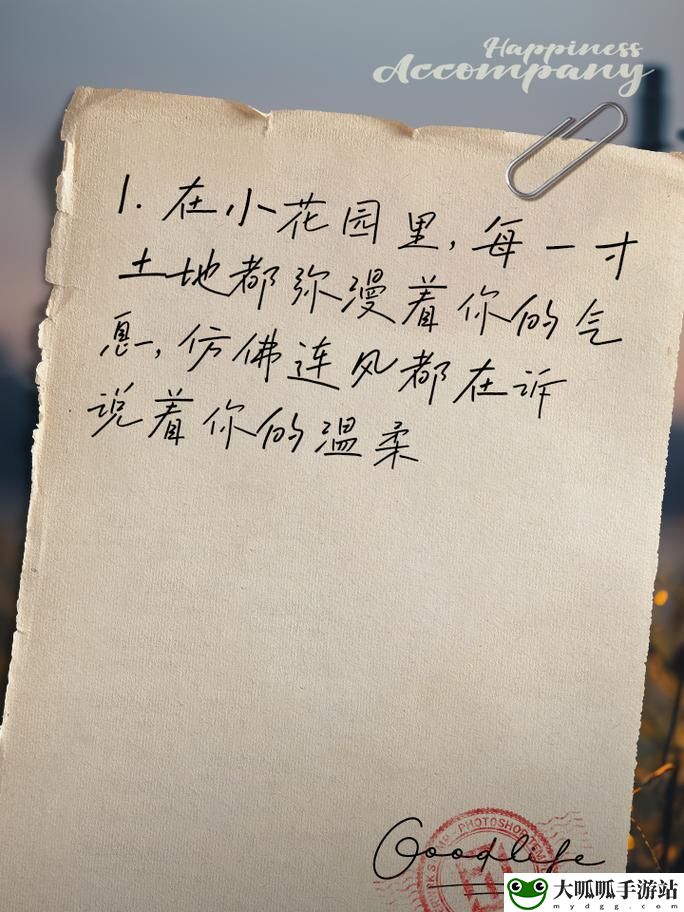 Happiness
Accompany
1. 在小花园里,每一寸
土地都弥漫着你的气
息,仿佛连风都在诉
说着你的温柔
PHOTOSHOP
Goodlife
大呱呱手游站
mydgg.com